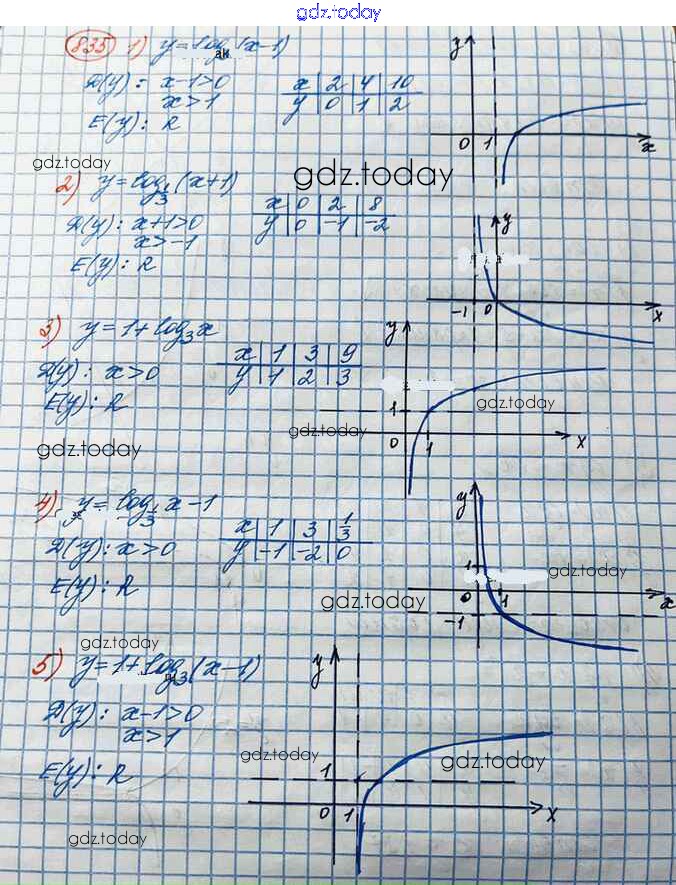 gdz.today
835 1) y = log (x-1)
D(y): x-1>0
x>1
E(y): R
x 2 4 10
y 0 1 2
y
0 1 x
gdz.today
gdz.today
2) y = log 1/3 (x+1)
D(y): x+1>0
x>-1
E(y): R
x 0 2 8
y 0 -1 -2
y
-1 0 x
3) y = 1 + log₃x
D(y): x>0
E(y): R
x 1 3 9
y 1 2 3
y
1
0 1 x
gdz.today
gdz.today
gdz.today
4) y = log 1/3 x - 1
D(y): x>0
E(y): R
x 1 3 1/3
y -1 -2 0
y
1
0 1 x
-1
gdz.today
gdz.today
gdz.today
5) y = 1 + log₃(x-1)
D(y): x-1>0
x>1
E(y): R
y
1
0 1 x
gdz.today
gdz.today
gdz.today